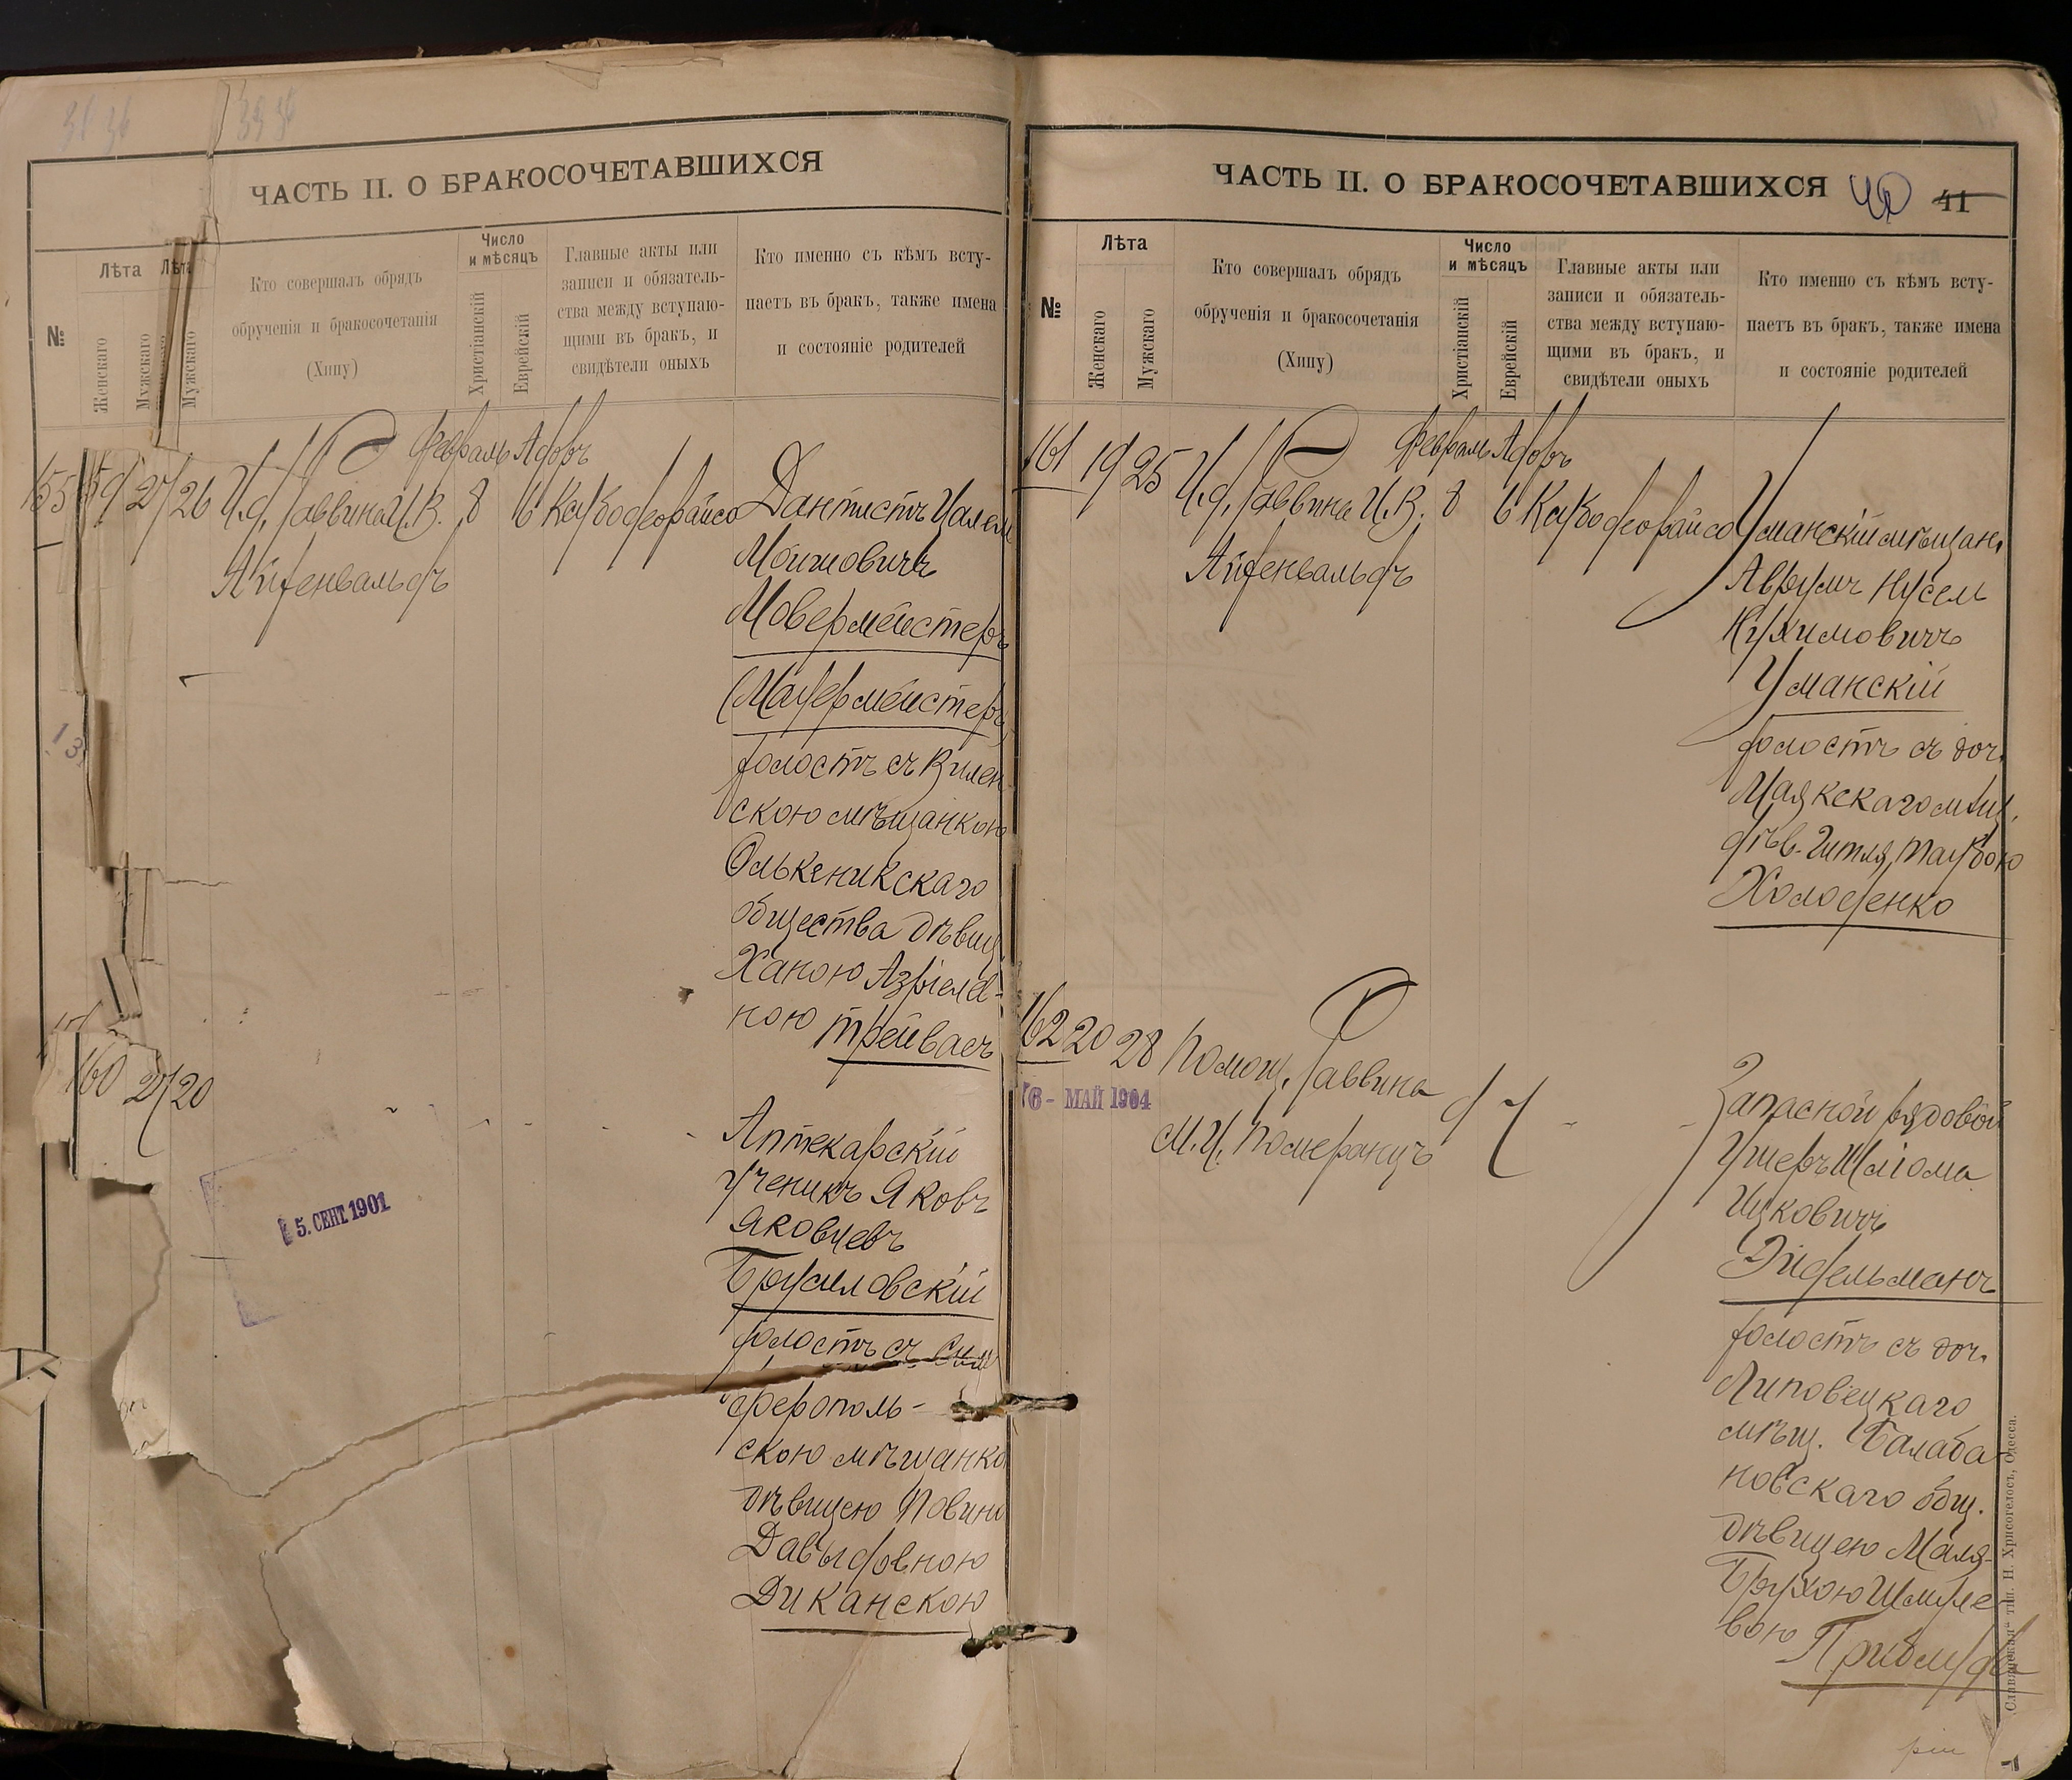 ЧАСТЬ II. О БРАКОСОЧЕТАВШИХСЯ
№
Лѣта
Лѣта
Женскаго
Мужскаго
Мужскаго
Кто совершалъ обрядъ
обрученія и бракосочетанія
(Хипу)
Число
и мѣсяцъ
Христіанскій
Еврейскій
Главные акты или
записи и обязатель-
ства между вступаю-
щими въ бракъ, и
свидѣтели оныхъ
Кто именно съ кѣмъ всту-
паетъ въ бракъ, также имена
и состояніе родителей
Февраль
26 И.д. Раввина И.В. 8
Айзенвальдъ
Дантистъ
Мовермейстеръ
(Мауермейстеръ
холостъ съ Вилен
скою мѣщанкою
Олькеникскаго
общества дѣвиц
Ханою Азріелев-
ною Трейвасъ
160 21 20
Аптекарскій
ученикъ Яковъ
Яковлевъ
Бруиловскій
холостъ съ Сим
ферополь-
скою мѣщанко
дѣвицею
Давыдовною
Диканскою
5. СЕНТ. 1901
ЧАСТЬ II. О БРАКОСОЧЕТАВШИХСЯ
40 41
№
Лѣта
Женскаго
Мужскаго
Кто совершалъ обрядъ
обрученія и бракосочетанія
(Хипу)
Число
и мѣсяцъ
Христіанскій
Еврейскій
Главные акты или
записи и обязатель-
ства между вступаю-
щими въ бракъ, и
свидѣтели оныхъ
Кто именно съ кѣмъ всту-
паетъ въ бракъ, также имена
и состояніе родителей
Февраль
161 19 25 И.д. Раввина И.В. 8
Айзенвальдъ
Уманскій мѣщан.
Аврумъ Нусем
Нухимовичъ
Уманскій
холостъ съ доч.
Маякскаго мѣщ.
дѣв. Гитля Таубою
Холоденко
162 20 28 Помощ. Раввина
М.И. Померанцъ
6 - МАЙ 1904
Запасной рядовой
Ушеръ Шлiома
Ицковичъ
Эйдельманъ
холостъ съ доч.
Липовецкаго
мѣщ. Балаба
новскаго общ.
дѣвицею Маля-
Брухою Шмуле
вою Приблуда
„Славянская“ тип. Н. Хрисогелосъ, Одесса.